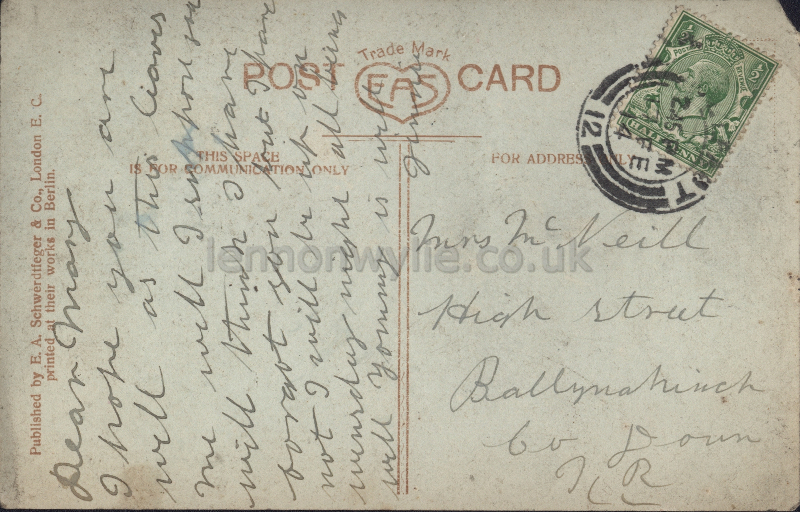 POST CARD
Trade Mark
EAS
THIS SPACE
IS FOR COMMUNICATION ONLY
FOR ADDRESS ONLY
Published by E. A. Schwerdtfeger & Co., London E. C.
printed at their works in Berlin.
Dear Mary
I hope you are
well as this leaves
me well I suppose you
will think I have
forgot you but I have
not I will be up on
wensday night all being
well Tommy is well
Mrs McNeill
High street
Ballynahinch
Co Down
HALFPENNY
12
14
lennonwylie.co.uk